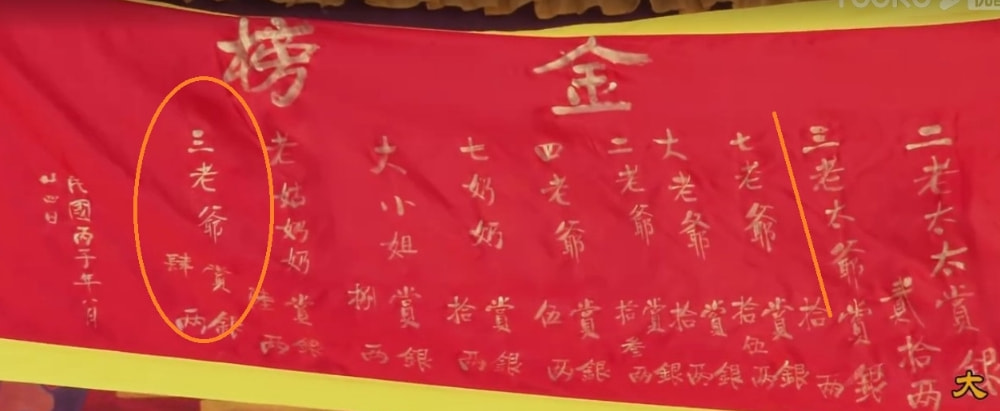 金榜
二老太太賞銀貳拾两
三老太爺賞銀拾两
七老爺賞銀拾伍两
大老爺賞銀拾两
二老爺賞銀拾叁两
四老爺賞銀伍两
七奶奶賞銀拾两
大小姐賞銀捌两
老姑奶奶賞銀陸两
三老爺賞銀肆两
民國丙子年八月
廿四日
大